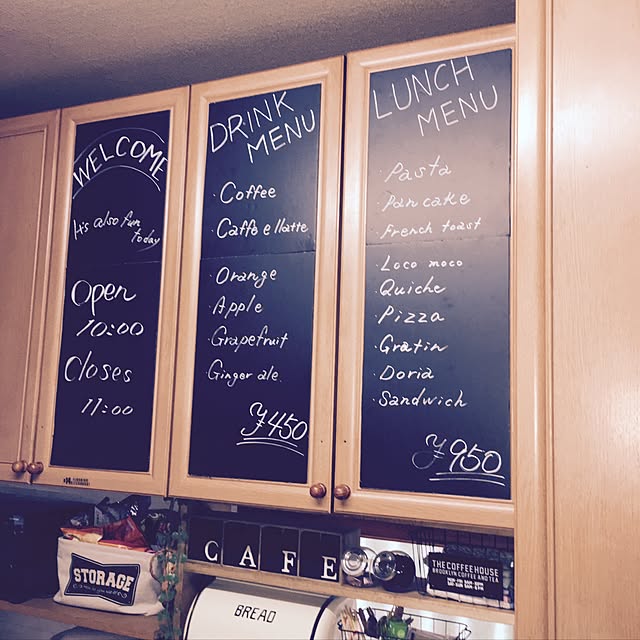 WELCOME
It's also fun
today
Open
10:00
Closes
11:00
DRINK
MENU
・Coffee
・Caffe llatte
・Orange
・Apple
・Grapefruit
・Ginger ale.
¥450
LUNCH
MENU
・Pasta
・Pan cake
・French toast
・Loco moco
・Quiche
・Pizza
・Gratin
・Doria
・Sandwich
¥950
STORAGE
CAFE
BREAD
THE COFFEE HOUSE
BROOKLYN COFFEE AND TEA